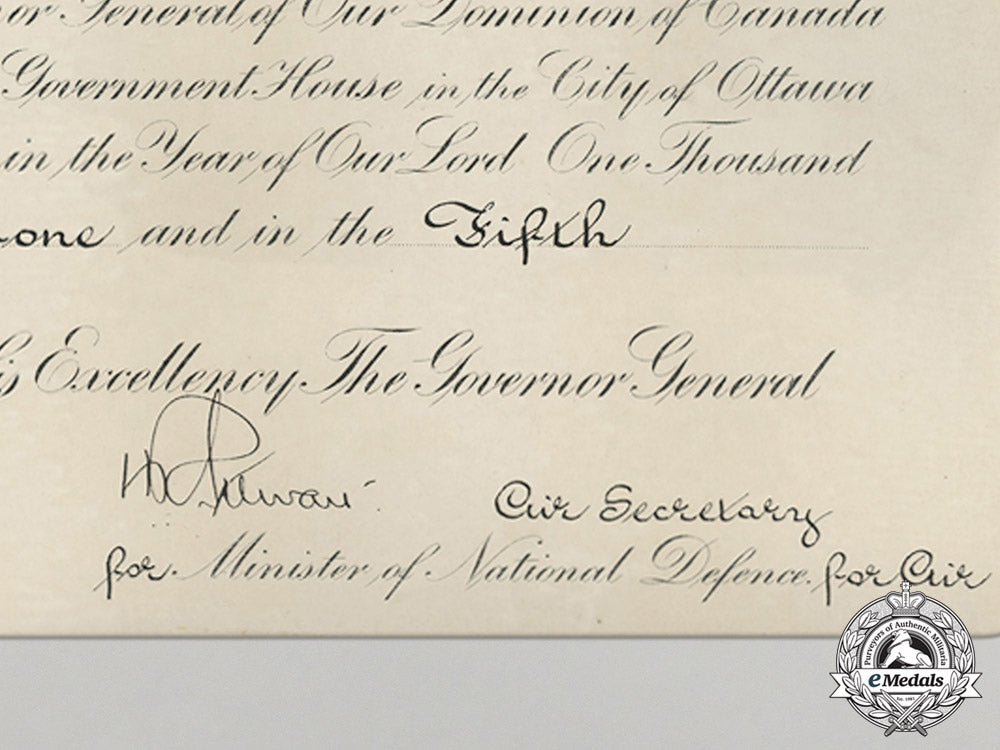 or General of Our Dominion of Canada
Government House in the City of Ottawa
in the Year of Our Lord One Thousand
-one and in the Fifth
is Excellency The Governor General
Air Secretary
for Minister of National Defence for Air
Purveyors of Authentic Militaria
eMedals
Est. 1995